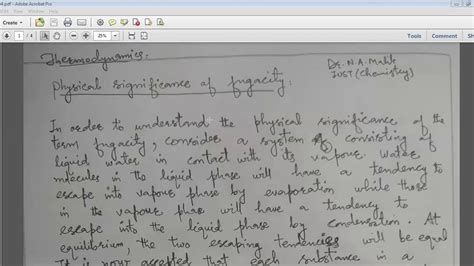 4.pdf - Adobe Acrobat Pro
1 / 4
25%
Thermodynamics.
Dr. N.A. Malik
IUST (Chemistry)
Physical significance of fugacity:
In order to understand the physical significance of the
term fugacity, consider a system consisting of
liquid water in contact with its vapour. Water
molecules in the liquid phase will have a tendency to
escape into vapour phase by evaporation while those
in the vapour phase will have a tendency to
escape into the liquid phase by condensation. At
equilibrium, the two escaping tendencies will be equal
It is now accepted that each substance in a